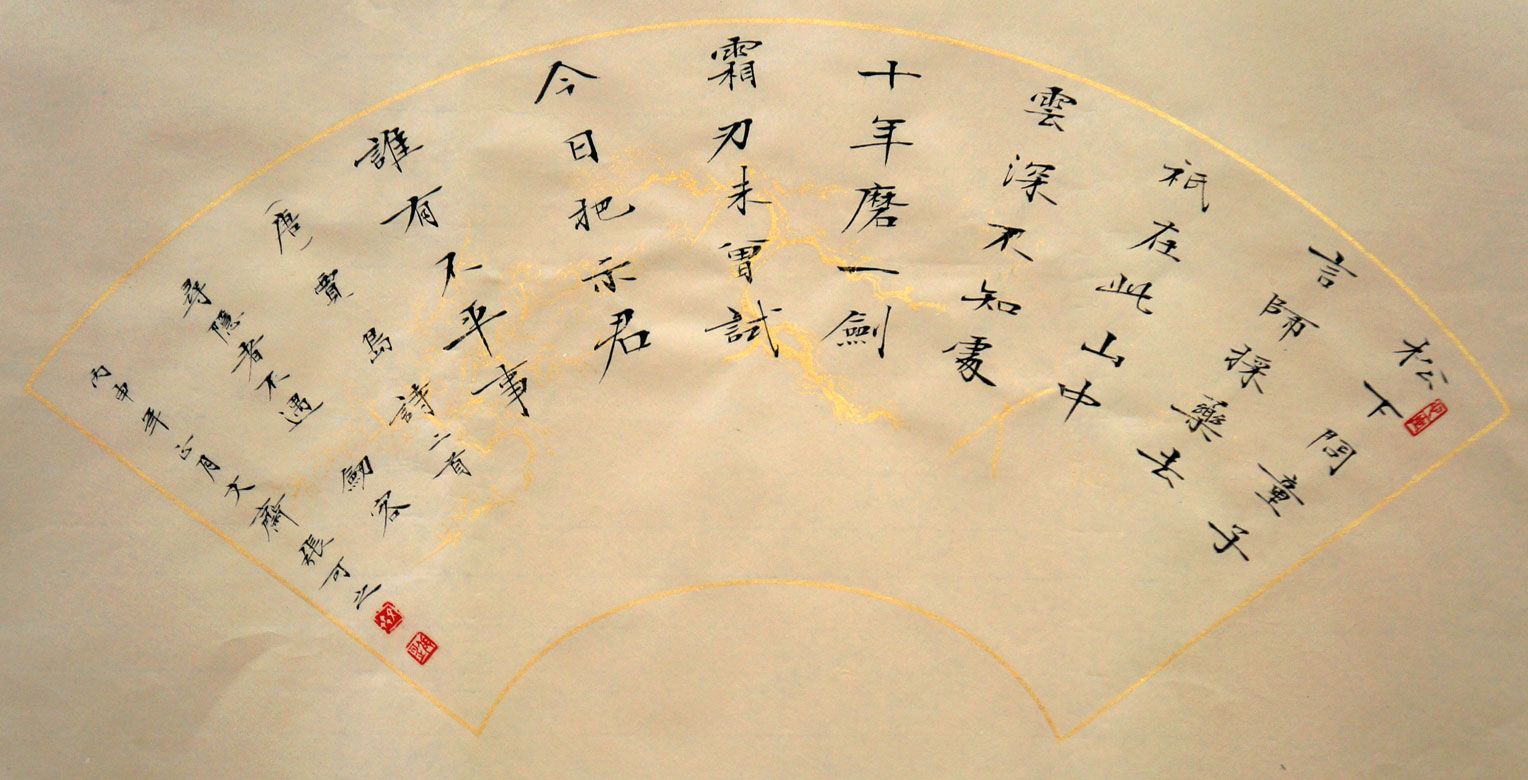 松下問童子
言師採藥去
祇在此山中
雲深不知處
十年磨一劍
霜刃未曾試
今日把示君
誰有不平事
(唐)賈島詩二首
尋隱者不遇 劍客
丙申年正月文齋張可之